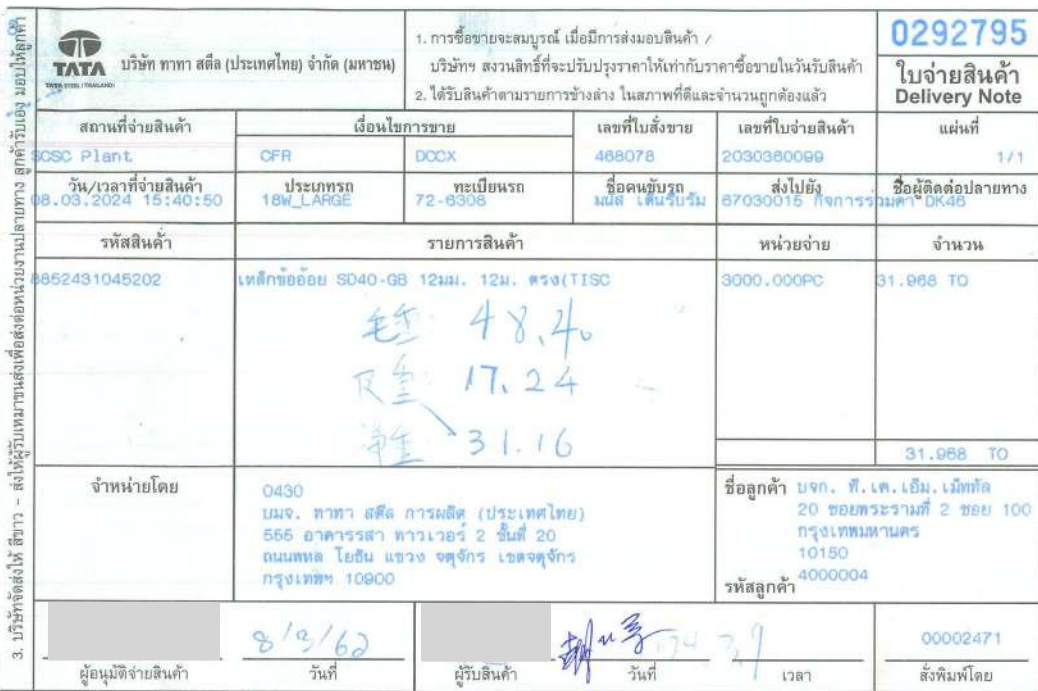 TATA
TATA STEEL (THAILAND)
บริษัท ทาทา สตีล (ประเทศไทย) จำกัด (มหาชน)
1. การซื้อขายจะสมบูรณ์ เมื่อมีการส่งมอบสินค้า /
บริษัทฯ สงวนสิทธิ์ที่จะปรับปรุงราคาให้เท่ากับราคาซื้อขายในวันรับสินค้า
2. ได้รับสินค้าตามรายการข้างล่าง ในสภาพที่ดีและจำนวนถูกต้องแล้ว
0292795
ใบจ่ายสินค้า
Delivery Note
สถานที่จ่ายสินค้า เงื่อนไขการขาย เลขที่ใบสั่งขาย เลขที่ใบจ่ายสินค้า แผ่นที่
SCSC Plant CFR DCCX 468078 2030360099 1/1
วัน/เวลาที่จ่ายสินค้า ประเภทรถ ทะเบียนรถ ชื่อคนขับรถ ส่งไปยัง ชื่อผู้ติดต่อปลายทาง
08.03.2024 15:40:50 18W_LARGE 72-6308 มนัส เดินริบรัม 67030015 กิจการร่วมค้า DK46
รหัสสินค้า รายการสินค้า หน่วยจ่าย จำนวน
8852431045202 เหล็กข้ออ้อย SD40-GB 12มม. 12ม. ตรง(TISC 3000.000PC 31.968 TO
毛重: 48.40
皮重: 17.24
净重 31.16
31.968 TO
จำหน่ายโดย
0430
บมจ. ทาทา สตีล การผลิต (ประเทศไทย)
555 อาคารรสา ทาวเวอร์ 2 ชั้นที่ 20
ถนนพหล โยธิน แขวง จตุจักร เขตจตุจักร
กรุงเทพฯ 10900
ชื่อลูกค้า บจก. ที.เค.เอ็ม.เม็ททัล
20 ซอยพระรามที่ 2 ซอย 100
กรุงเทพมหานคร
10150
รหัสลูกค้า 4000004
8/3/62
00002471
ผู้อนุมัติจ่ายสินค้า วันที่ ผู้รับสินค้า วันที่ เวลา สั่งพิมพ์โดย
3. บริษัทจัดส่งให้ สีขาว - ส่งให้ผู้รับเหมาขนส่งเพื่อส่งต่อหน่วยงานปลายทาง ลูกค้ารับเอง มอบให้ลูกค้า